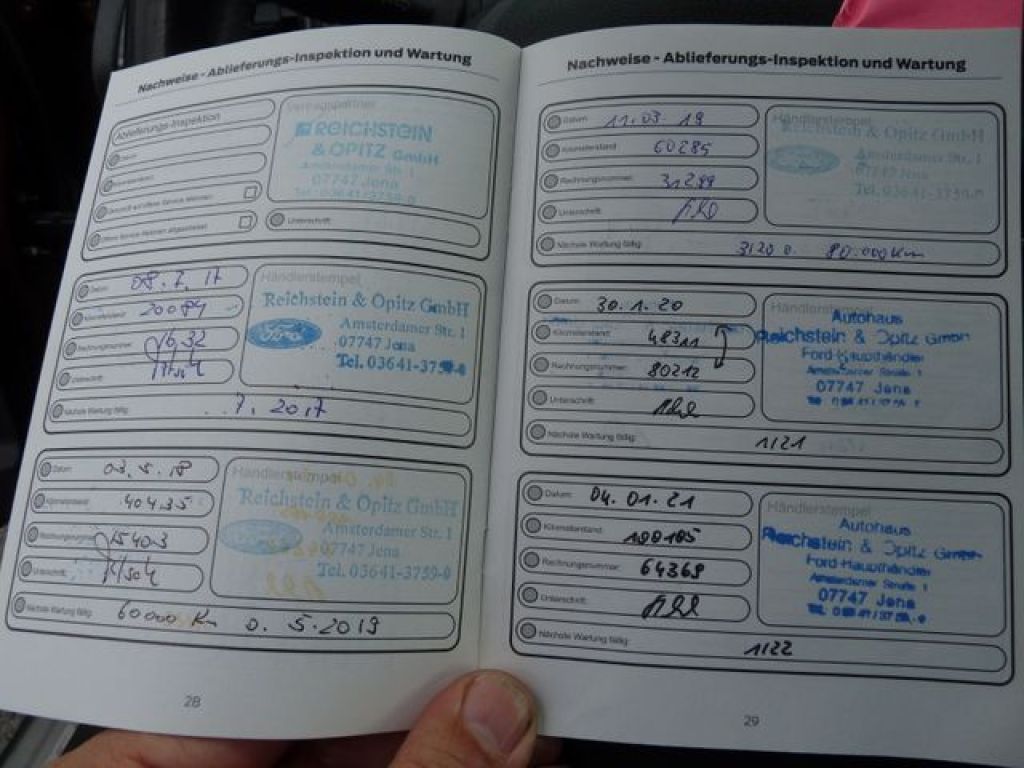 Nachweise - Ablieferungs-Inspektion und Wartung
Ablieferungs-Inspektion
Datum
Kilometerstand
Offene Service-Aktionen abgearbeitet
Unterschrift:
Vertragspartner
REICHSTEIN
& OPITZ GmbH
Amsterdamer Str. 1
07747 Jena
Tel. 03641/3759-0
Datum: 08.2.17
Kilometerstand: 20084
Rechnungsnummer:
Unterschrift:
Nächste Wartung fällig: 7.2017
Händlerstempel
Reichstein & Opitz GmbH
Ford
Amsterdamer Str. 1
07747 Jena
Tel. 03641-3759-0
Datum: 03.5.18
Kilometerstand: 40435
Rechnungsnummer: 15403
Unterschrift:
Nächste Wartung fällig: 60000 Km o. 5.2019
Händlerstempel
Reichstein & Opitz GmbH
Amsterdamer Str. 1
07747 Jena
Tel. 03641-3759-0
28
Nachweise - Ablieferungs-Inspektion und Wartung
Datum: 11.03.19
Kilometerstand: 60285
Rechnungsnummer: 31299
Unterschrift:
Nächste Wartung fällig: 3120 o. 80.000Km
Händlerstempel
Reichstein & Opitz GmbH
Amsterdamer Str. 1
07747 Jena
Tel. 03641-3759-0
Datum: 30.1.20
Kilometerstand: 48311
Rechnungsnummer: 80212
Unterschrift:
Nächste Wartung fällig: 1/21
Händlerstempel
Autohaus
Reichstein & Opitz GmbH
Ford-Haupthändler
Amsterdamer Straße 1
07747 Jena
Datum: 04.01.21
Kilometerstand: 100185
Rechnungsnummer: 64369
Unterschrift:
Nächste Wartung fällig: 1/22
Händlerstempel
Autohaus
Reichstein & Opitz GmbH
Ford-Haupthändler
Amsterdamer Straße 1
07747 Jena
29